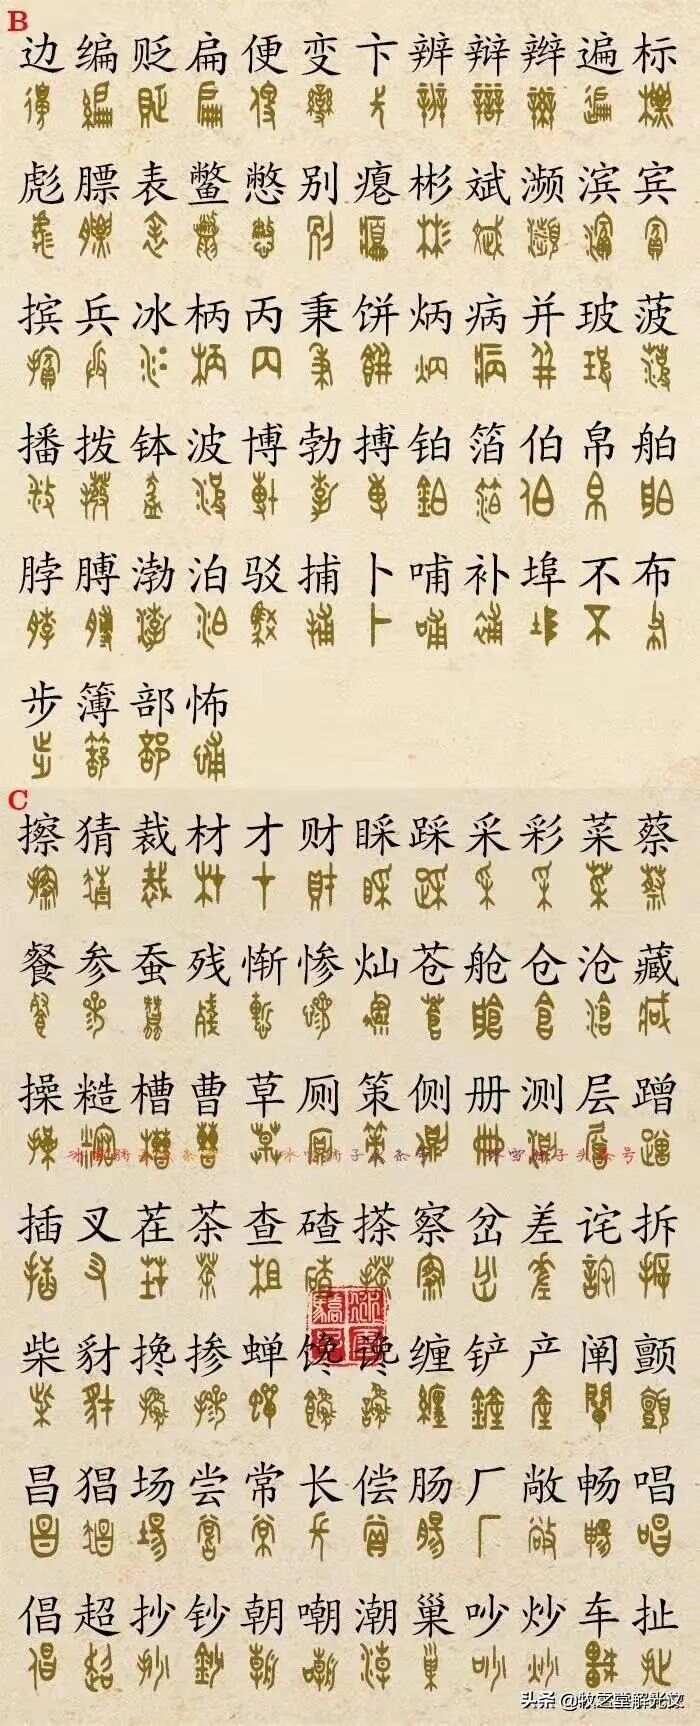 B
边编贬扁便变卞辨辩辫遍标
彪膘表鳖憋别瘪彬斌濒滨宾
摈兵冰柄丙秉饼炳病并玻菠
播拨钵波博勃搏铂箔伯帛舶
脖膊渤泊驳捕卜哺补埠不布
步簿部怖
C
擦猜裁材才财睬踩采彩菜蔡
餐参蚕残惭惨灿苍舱仓沧藏
操糙槽曹草厕策侧册测层蹭
插叉茬茶查碴搽察岔差诧拆
柴豺搀掺蝉馋谗缠铲产阐颤
昌猖场尝常长偿肠厂敞畅唱
倡超抄钞朝嘲潮巢吵炒车扯
头条 @牧之堂解光文